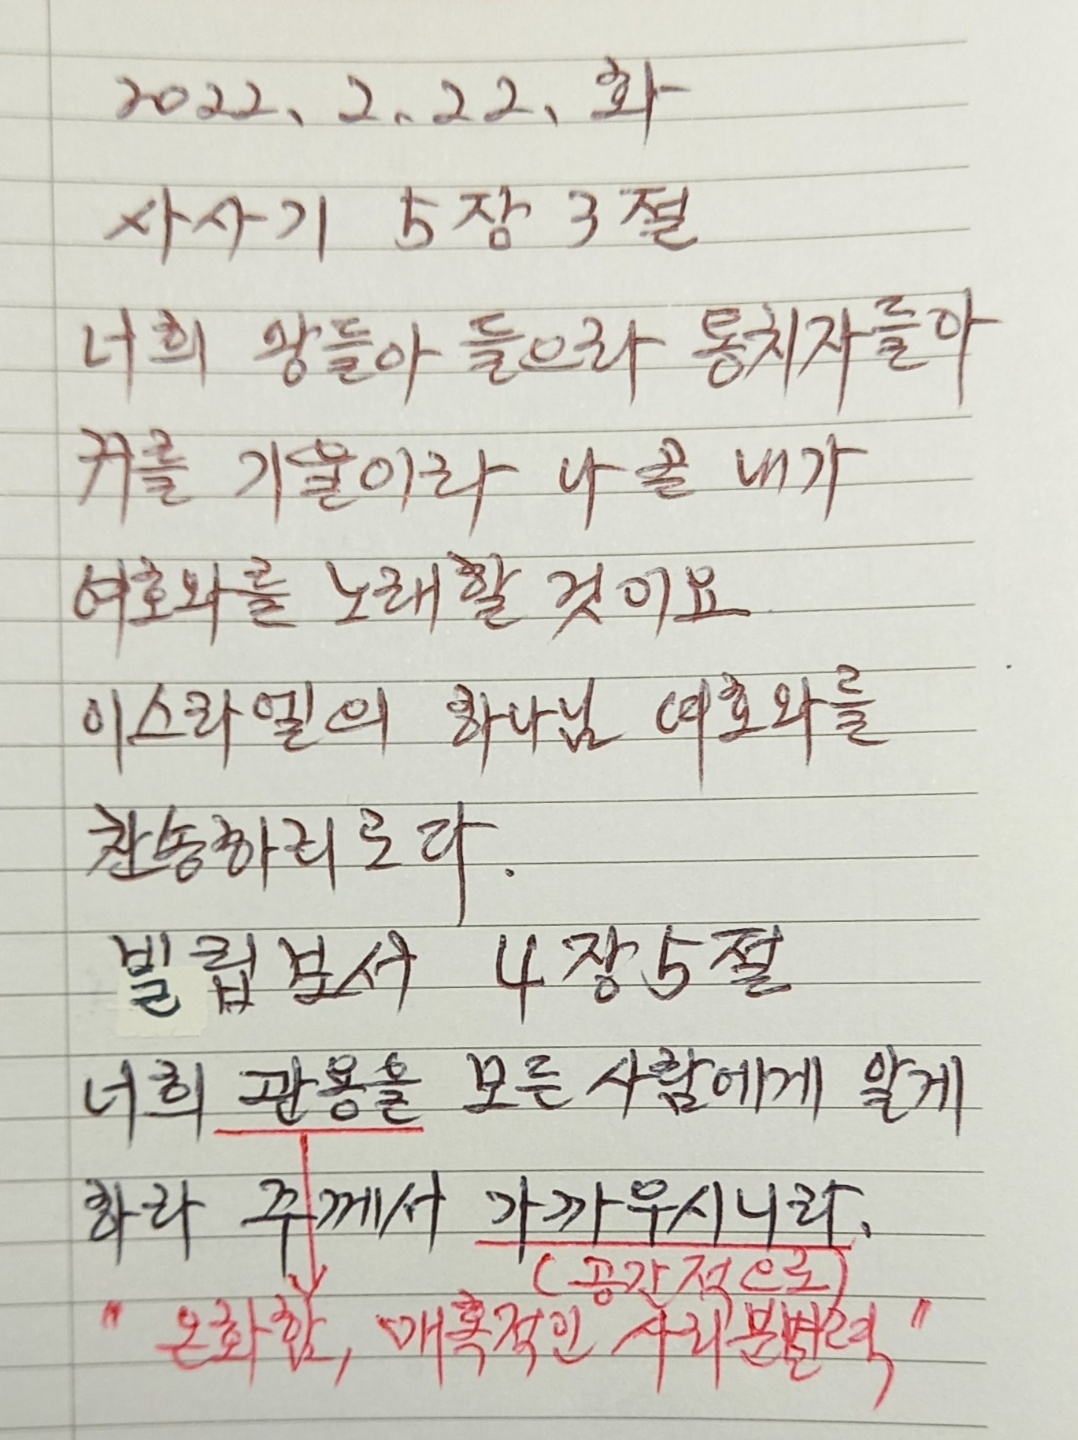 2022. 2. 22. 화
사사기 5장 3절
너희 왕들아 들으라 통치자들아
귀를 기울이라 나 곧 내가
여호와를 노래할 것이요
이스라엘의 하나님 여호와를
찬송하리로다.
빌립보서 4장 5절
너희 관용을 모든 사람에게 알게
하라 주께서 가까우시니라.
(공간적으로)
" 온화함, 매혹적인 사리분별력 "